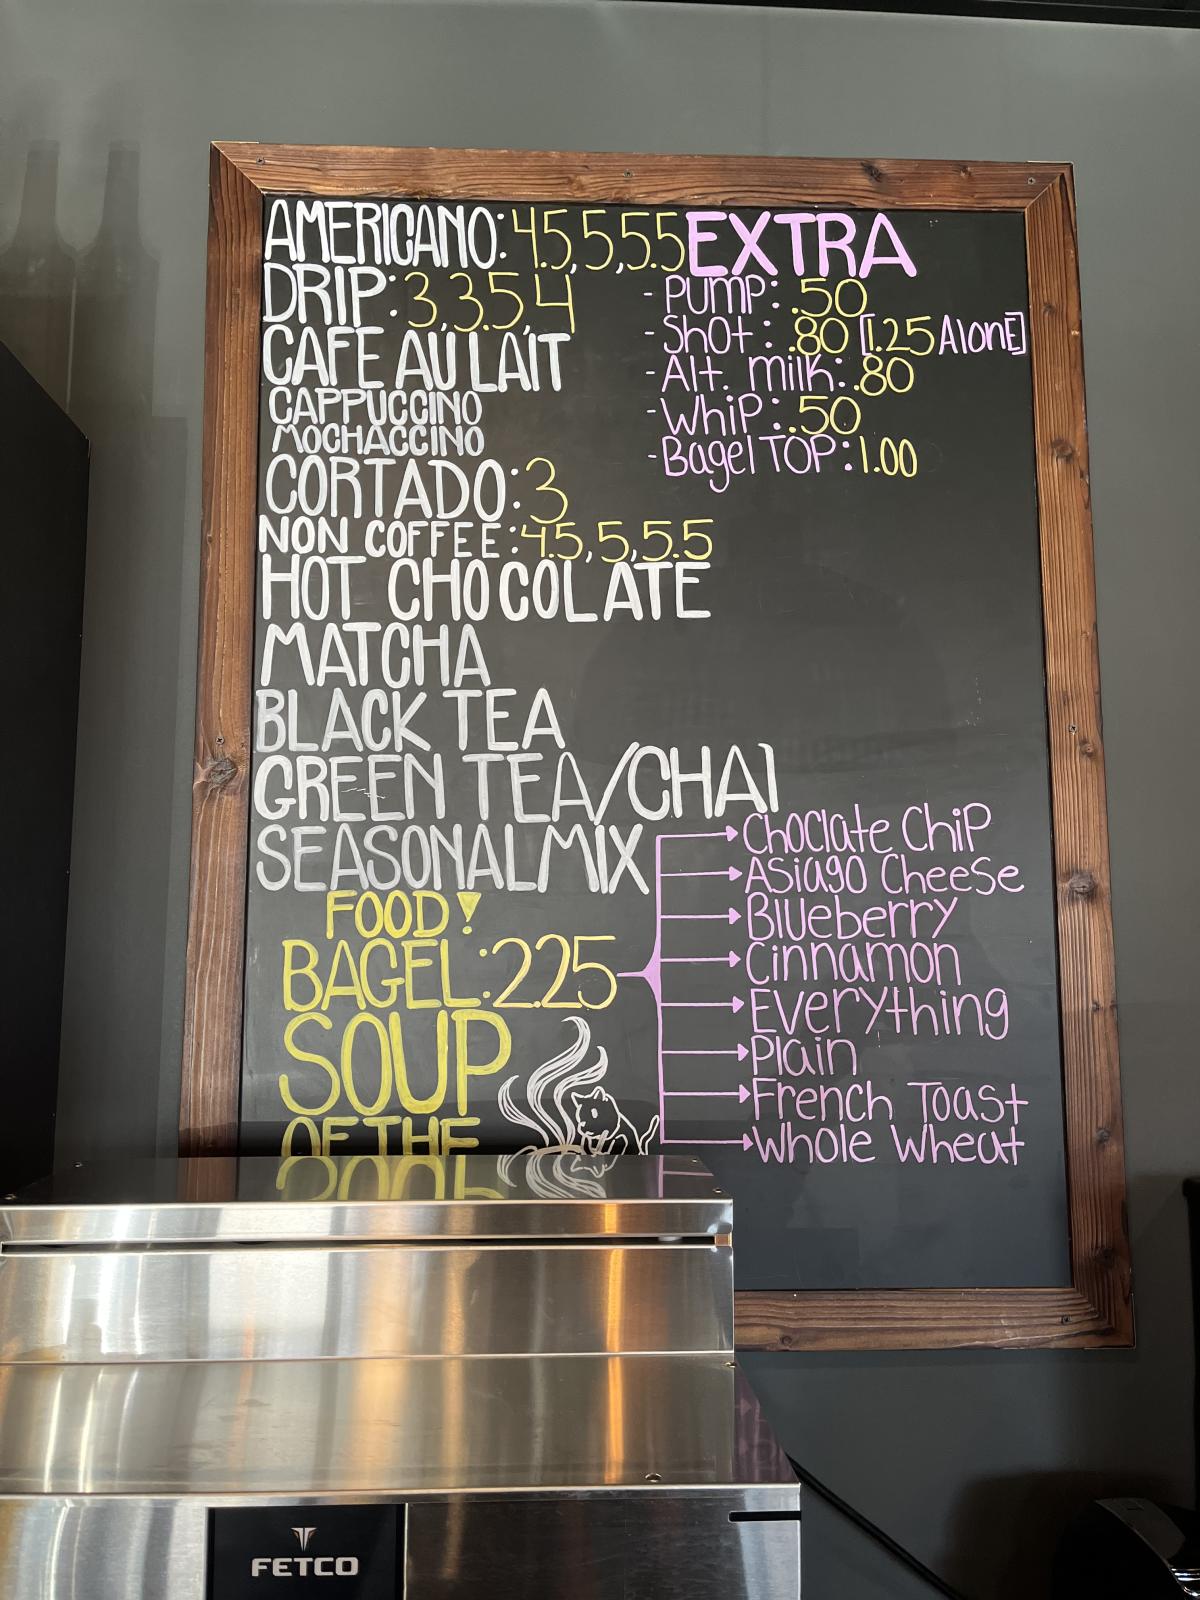 AMERICANO: 4.5, 5, 5.5
DRIP: 3, 3.5, 4
CAFE AU LAIT
CAPPUCCINO
MOCHACCINO
CORTADO: 3
NON COFFEE: 4.5, 5, 5.5
HOT CHOCOLATE
MATCHA
BLACK TEA
GREEN TEA/CHAI
SEASONAL MIX
FOOD!
BAGEL: 2.25
SOUP
OF THE
EXTRA
- PUMP: .50
- Shot: .80 [1.25 AlonE]
- Alt. milk: .80
- Whip: .50
- Bagel TOP: 1.00
Choclate Chip
Asiago Cheese
Blueberry
Cinnamon
Everything
Plain
French Toast
Whole Wheat
FETCO